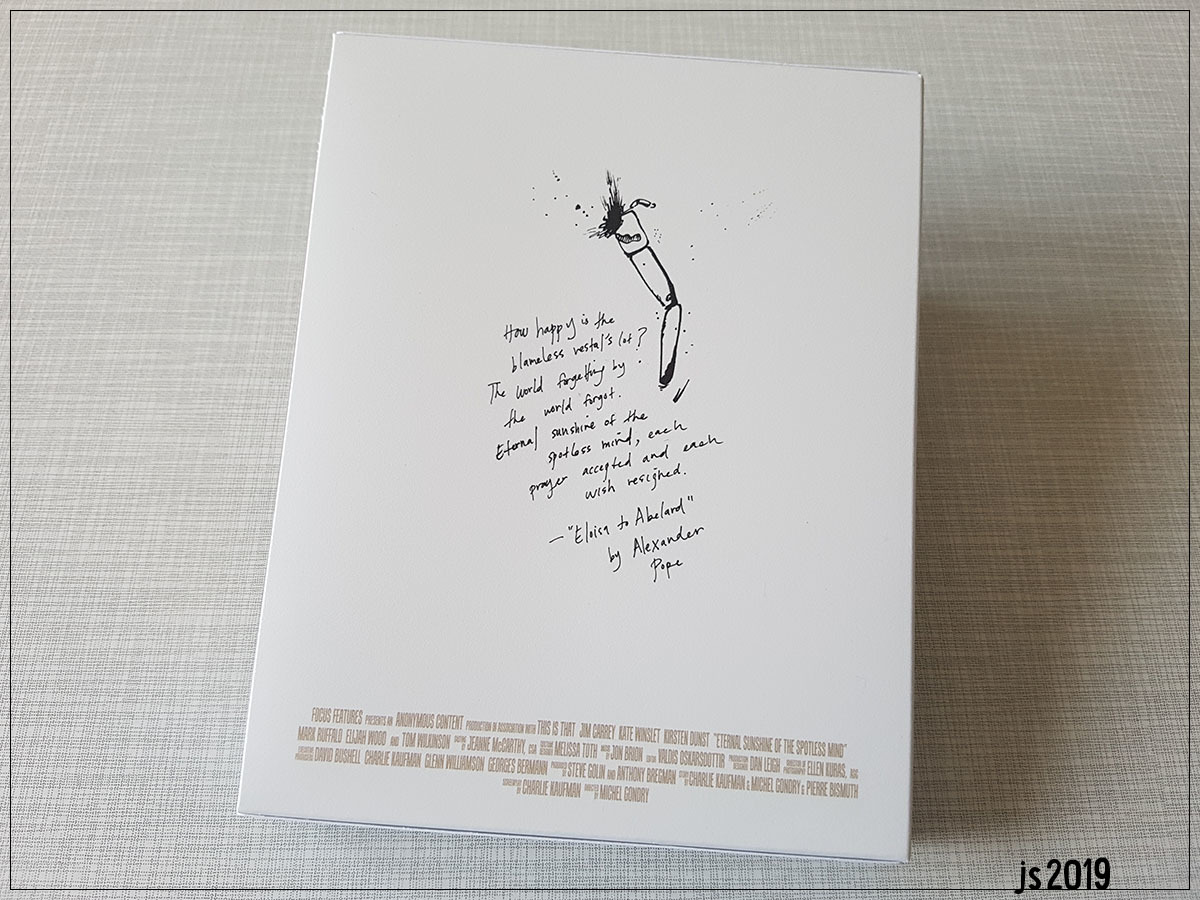 How happy is the
blameless vestal's lot?
The world forgetting by
the world forgot.
Eternal sunshine of the
spotless mind, each
prayer accepted and each
wish resigned.
— "Eloisa to Abelard"
by Alexander
Pope
FOCUS FEATURES PRESENTS AN ANONYMOUS CONTENT PRODUCTION IN ASSOCIATION WITH THIS IS THAT JIM CARREY KATE WINSLET KIRSTEN DUNST "ETERNAL SUNSHINE OF THE SPOTLESS MIND"
MARK RUFFALO ELIJAH WOOD AND TOM WILKINSON CASTING BY JEANNE McCARTHY, CSA COSTUME DESIGNER MELISSA TOTH MUSIC BY JON BRION EDITOR VALDIS OSKARSDOTTIR PRODUCTION DESIGNER DAN LEIGH DIRECTOR OF PHOTOGRAPHY ELLEN KURAS, ASC
EXECUTIVE PRODUCERS DAVID BUSHELL CHARLIE KAUFMAN GLENN WILLIAMSON GEORGES BERMANN PRODUCED BY STEVE GOLIN AND ANTHONY BREGMAN STORY BY CHARLIE KAUFMAN & MICHEL GONDRY & PIERRE BISMUTH
SCREENPLAY BY CHARLIE KAUFMAN DIRECTED BY MICHEL GONDRY
js2019